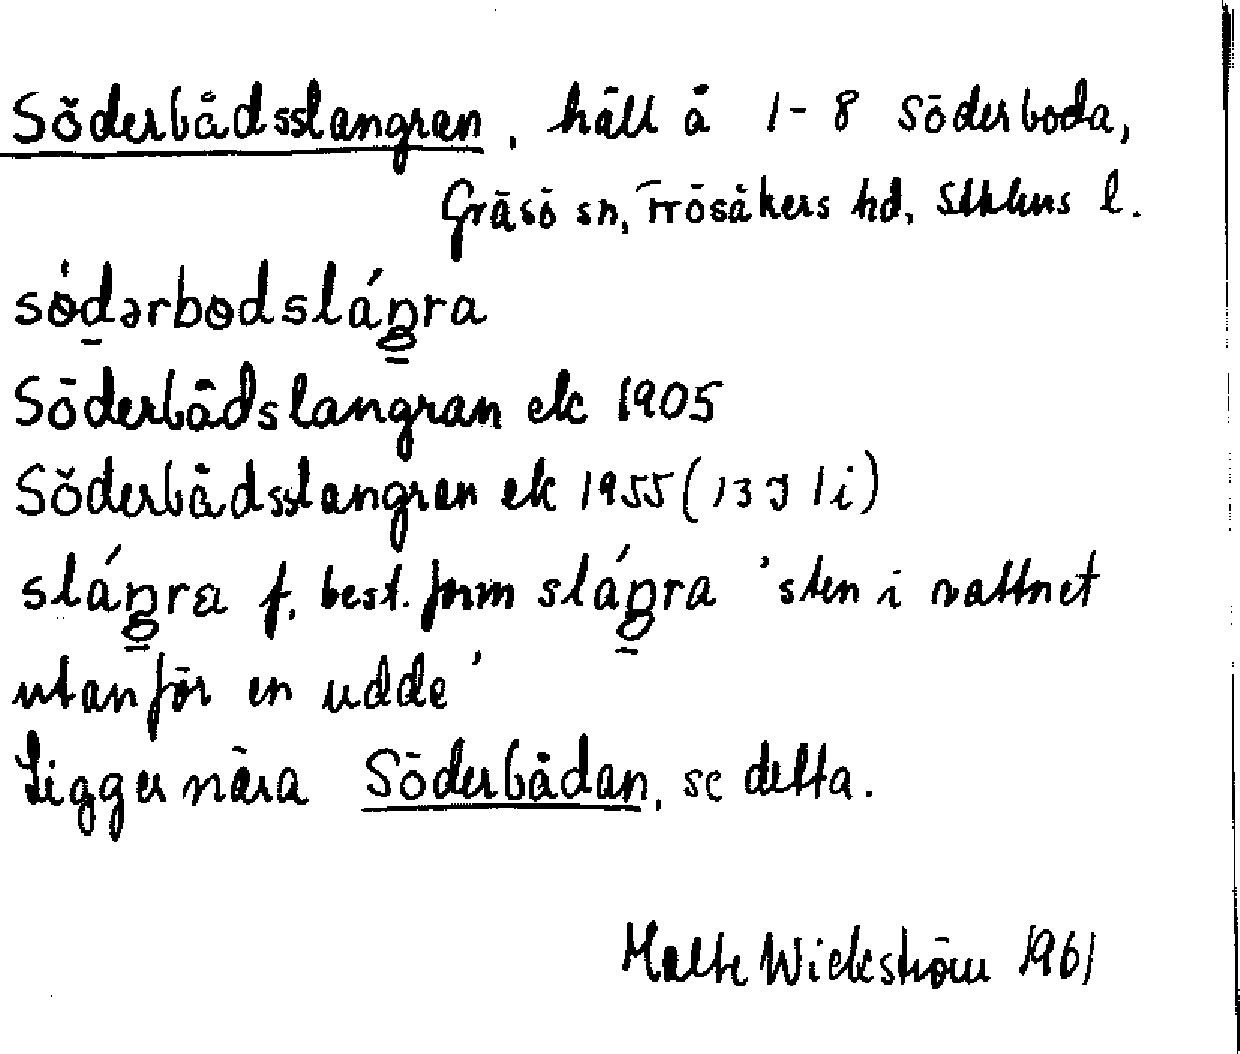 Söderbådsslangran, häll å 1-8 Söderboda,
Gräsö sn, Frösåkers hd, Sthlms l.
södərbodsláŋra
Söderbådslangran ek 1905
Söderbådsslangran ek 1955 (13 J 1 i)
sláŋra f. best. form sláŋra 'sten i vattnet
utanför en udde'
Ligger nära Söderbådan, se detta.
Malte Wickström 1961